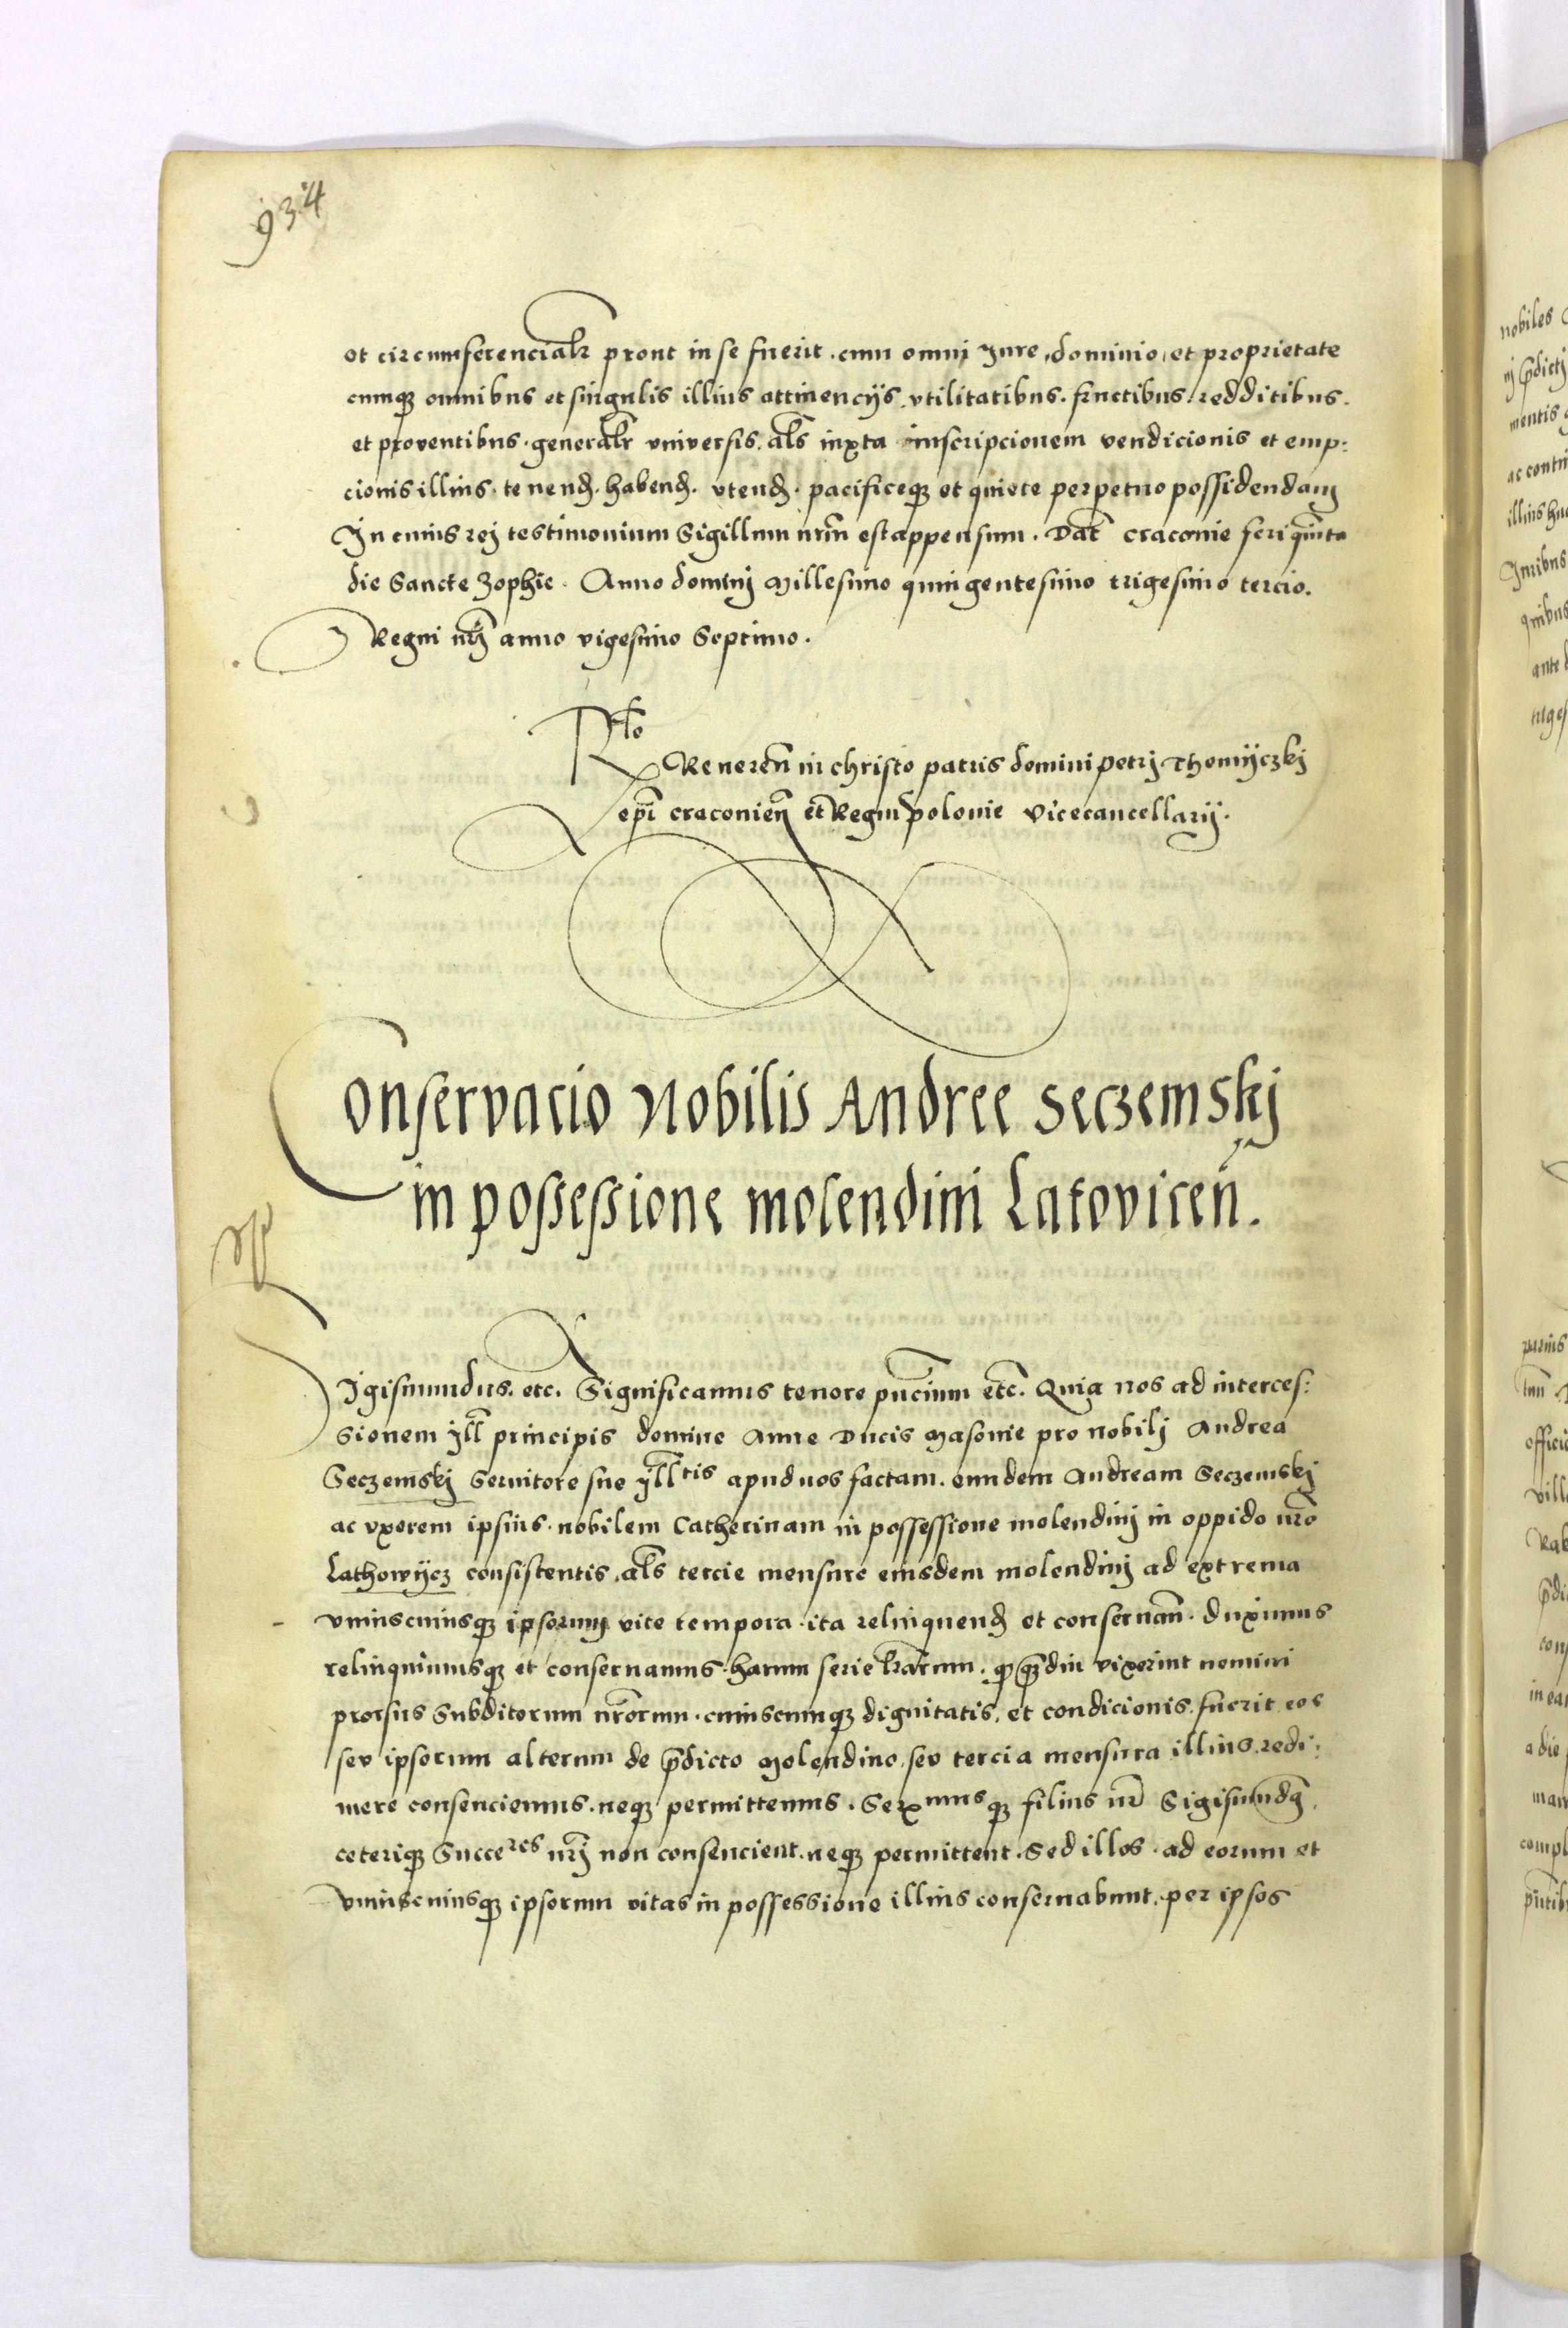 934
et circumferencialr prout in se fuerit. cum omni Jure, dominio, et proprietate
cumqz omnibus et singulis illius attinencijs. vtilitatibus. fructibus. redditibus.
et proventibus. generalr universis. als iuxta inscripcionem vendicionis et emp:
cionis illius. tenend. habend. vtend. pacificeqz et quiete perpetuo possidendam
In cuius rej testimonium Sigillum nrm est appensum. Dat Craconie feri quinta
die Sancte Zophie. Anno dominj Millesimo quingentesimo trigesimo tercio.
Regni nrj anno vigesimo Septimo.
Rlo
Reueren in christo patris domini petrj Thomijczkj
epi craconien et Regni polonie Vicecancellarij.
Conservacio Nobilis Andree Seczemskj
in possessione molendini Latovicen.
Sigismundus. etc. Significamus tenore pncium etc. Quia nos ad interces:
sionem Jll principis domine Anne Ducis Masouie pro nobilj Andrea
Seczemskj Seruitore sue Jlltis apud nos factam. eundem Andream Seczemskj
ac vxorem ipsius. nobilem Catherinam in possessione molendinj in oppido nro
Lathowijcz consistentis. als tercie mensure eiusdem molendinj ad extrema
vniuscuiusqz ipsorum vite tempora. ita relinquend et conseruan. duximus
relinquimusqz et conseruamus. harum serie lrarum. qz qzdiu vixerint nemini
prorsus Subditorum nrorum. cuiuscumqz dignitatis. et condicionis. fuerit eos
seu ipsorum alterum de pdicto Molendino. seu tercia mensura illius. redi:
mere consenciemus. neqz permittemus. Serxmusqz filius nr Sigismund
ceteriqz Succeres nrj non consencient. neqz permittent. Sed illos. ad eorum et
vniuscuiusqz ipsorum vitas in possessione illius conseruabunt. per ipsos